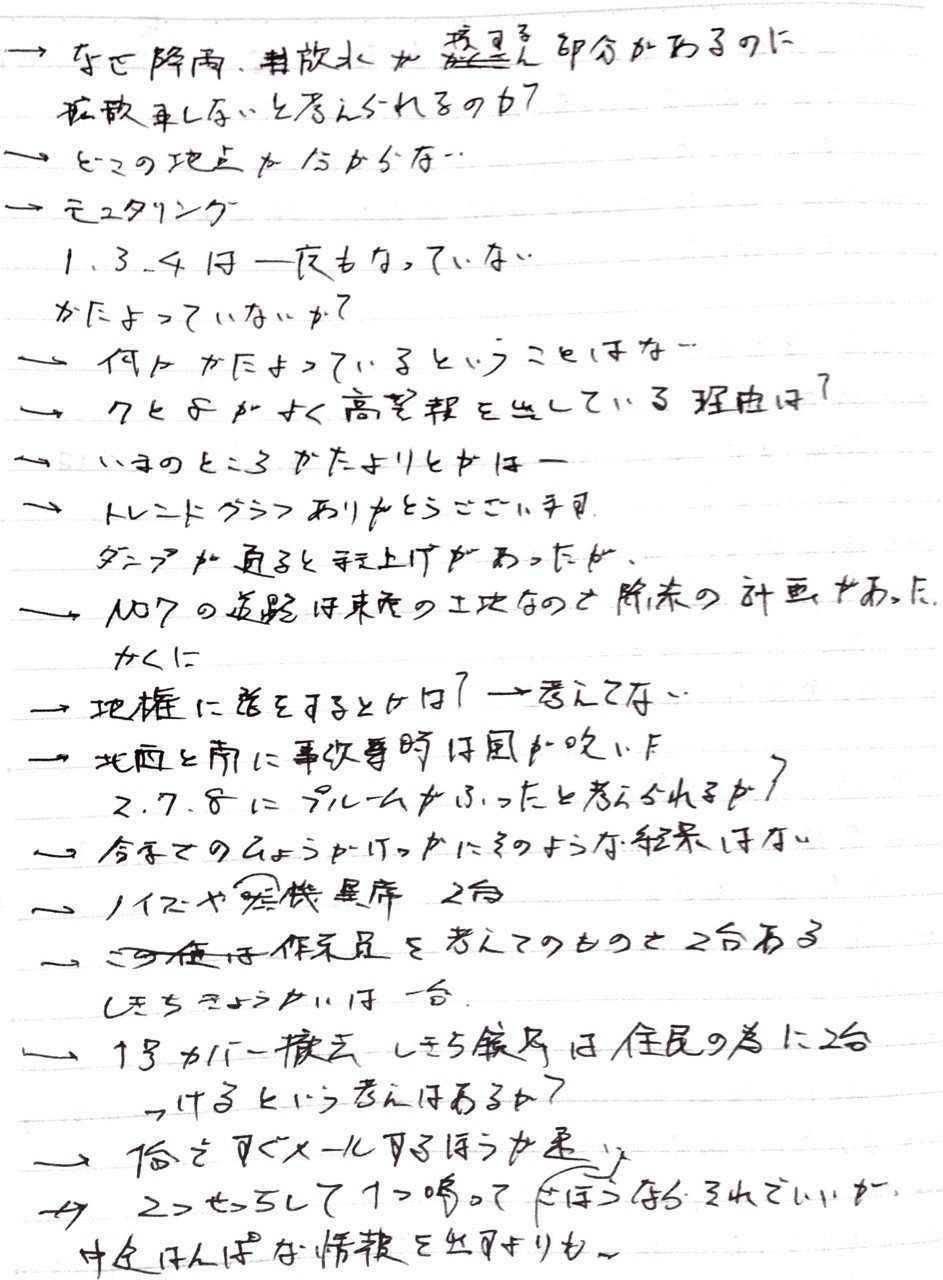 → なぜ降雨、放水が 接する 部分があるのに
拡散しないと考えられるのか?
→ どこの地点か分からない
→ モニタリング
1.3.4は一度もなっていない
かたよっていないか?
→ 何かかたよっているということはない
→ 7と8がよく高警報を出している理由は?
→ いまのところかたよりとかはー
→ トレンドグラフありがとうございます
ダンプが通ると 上げがあったが、
→ NO7の道路は東電の土地なので除染の計画があった
かくに
→ 地権に をするとかは? → 考えてない
→ 北西と南に事故等時は風が吹いた
2.7.8にプルームがふったと考えられるか?
→ 今までのひょうかけっかにそのような結果はない
→ ノイズや 機 2台
→ この値は作業員を考えてのもので2台ある
しきちきょうかいは一台
→ 1号カバー撤去 しきち境界は住民の為に2台
つけるという考えはあるか?
→ 1台ですぐメールするほうが速い
→ 2つせっちして1つ鳴って ごほうならそれでいいが、
中途はんぱな情報を出すよりも~